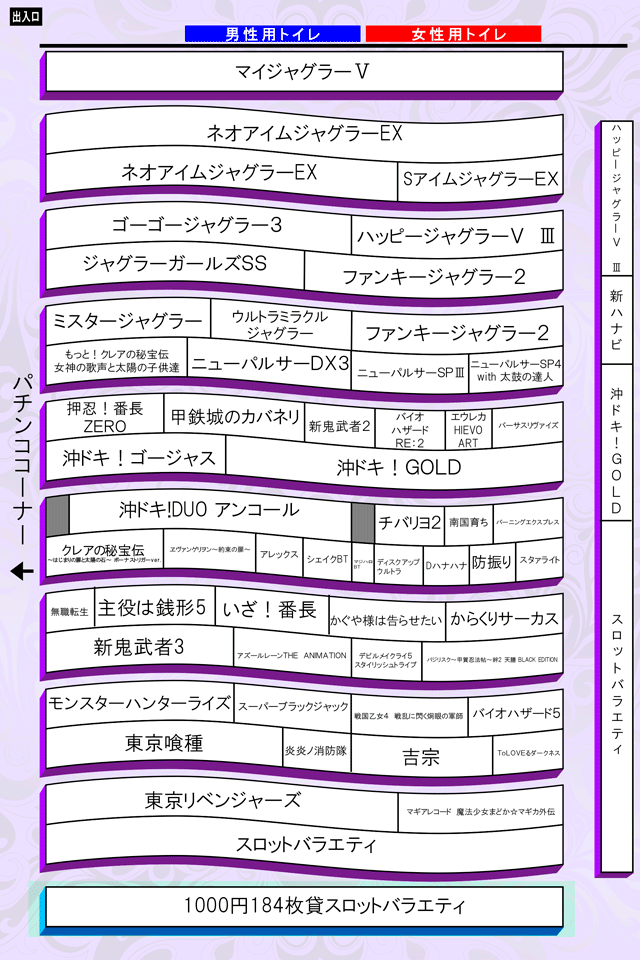 出入口
男性用トイレ
女性用トイレ
マイジャグラーⅤ
ネオアイムジャグラーEX
ネオアイムジャグラーEX
SアイムジャグラーEX
ゴーゴージャグラー3
ハッピージャグラーV Ⅲ
ジャグラーガールズSS
ファンキージャグラー2
ミスタージャグラー
ウルトラミラクル
ジャグラー
ファンキージャグラー2
もっと！クレアの秘宝伝
女神の歌声と太陽の子供達
ニューパルサーDX3
ニューパルサーSPⅢ
ニューパルサーSP4
with 太鼓の達人
押忍！番長
ZERO
甲鉄城のカバネリ
新鬼武者2
バイオ
ハザード
RE：2
エウレカ
HIEVO
ART
バーサスリヴァイズ
沖ドキ！ゴージャス
沖ドキ！GOLD
沖ドキ!DUO アンコール
チバリヨ2
南国育ち
バーニングエクスプレス
クレアの秘宝伝
～はじまりの扉と太陽の石～ ボーナストリガーver.
ヱヴァンゲリヲン～約束の扉～
アレックス
シェイクBT
マジハロ
BT
ディスクアップ
ウルトラ
Dハナハナ
防振り
スタァライト
無職転生
主役は銭形5
いざ！番長
かぐや様は告らせたい
からくりサーカス
新鬼武者3
アズールレーンTHE ANIMATION
デビルメイクライ5
スタイリッシュトライブ
バジリスク～甲賀忍法帖～絆2 天膳 BLACK EDITION
モンスターハンターライズ
スーパーブラックジャック
戦国乙女4 戦乱に閃く炯眼の軍師
バイオハザード5
東京喰種
炎炎ノ消防隊
吉宗
ToLOVEるダークネス
東京リベンジャーズ
マギアレコード 魔法少女まどか☆マギカ外伝
スロットバラエティ
1000円184枚貸スロットバラエティ
ハッピージャグラーV Ⅲ
新ハナビ
沖ドキ！GOLD
スロットバラエティ
パチンココーナー